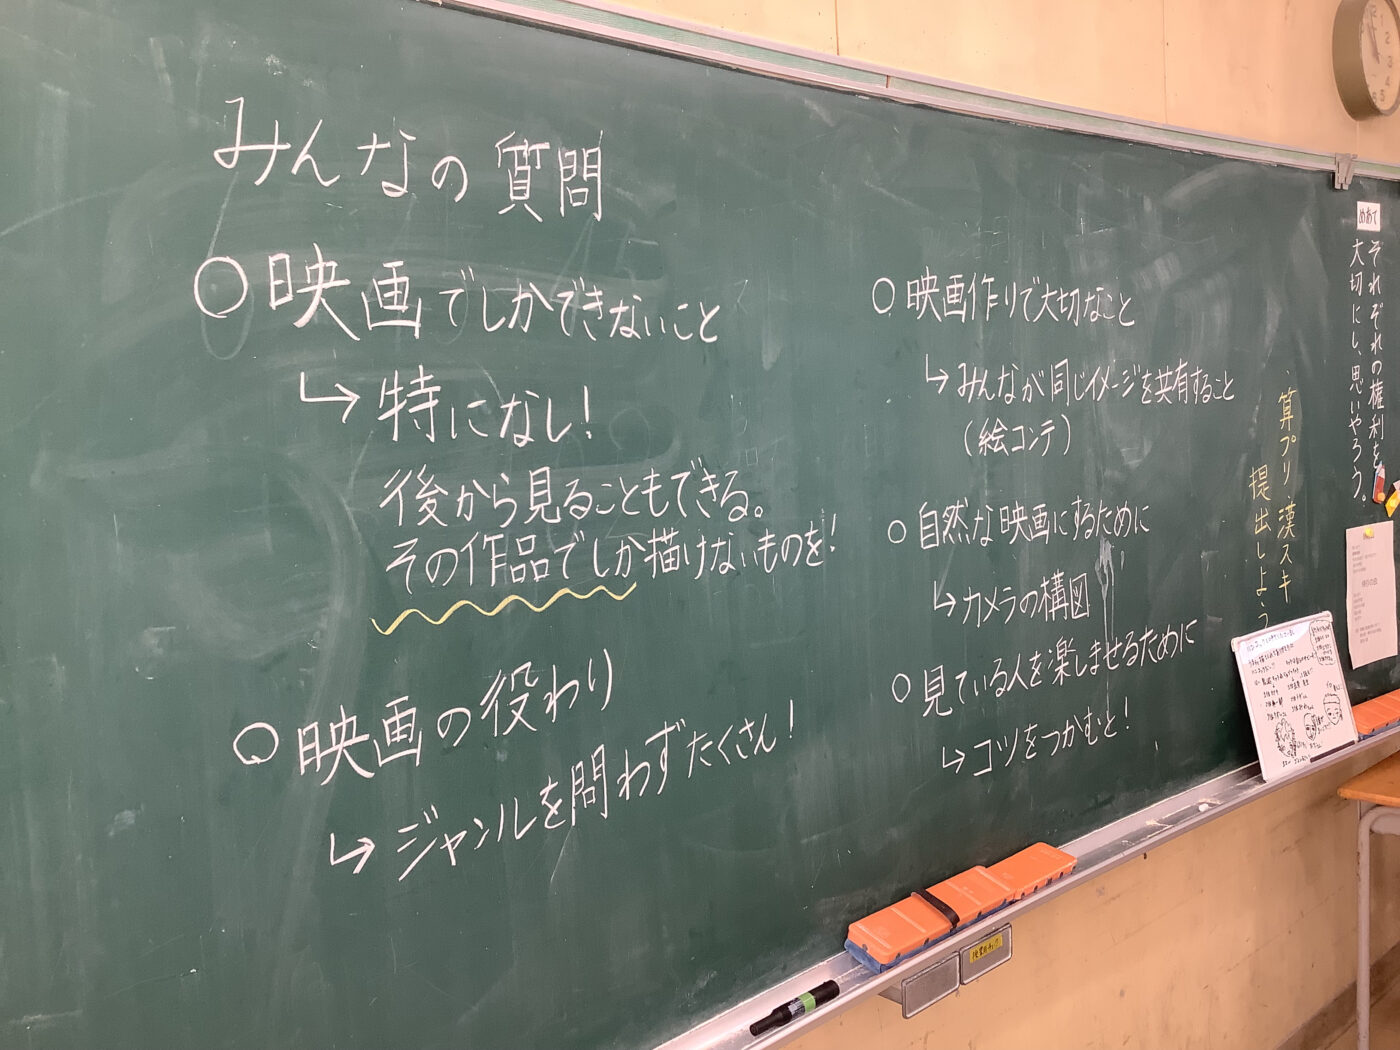 みんなの質問
○映画でしかできないこと
↳特になし!
後から見ることもできる。
その作品でしか描けないものを!
○映画の役わり
↳ジャンルを問わずたくさん!
○映画作りで大切なこと
↳みんなが同じイメージを共有すること
(絵コンテ)
○自然な映画にするために
↳カメラの構図
○見ている人を楽しませるために
↳コツをつかむと!
めあて
それぞれの権利を
大切にし、思いやろう。
算プリ 漢スキ
提出しよう